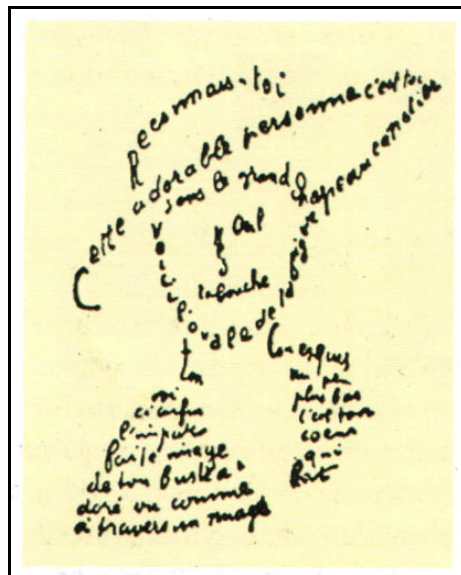 Reconnais-toi
Cette adorable personne c'est toi
sous le grand chapeau canotier
œil
la bouche
Voici l'ovale de ta figure
ton
cou exquis
voi
ci enfin
l'impar
faite image
de ton buste a
doré vu comme
à travers un nuage
un peu
plus bas
c'est ton
coeur
qui
bat